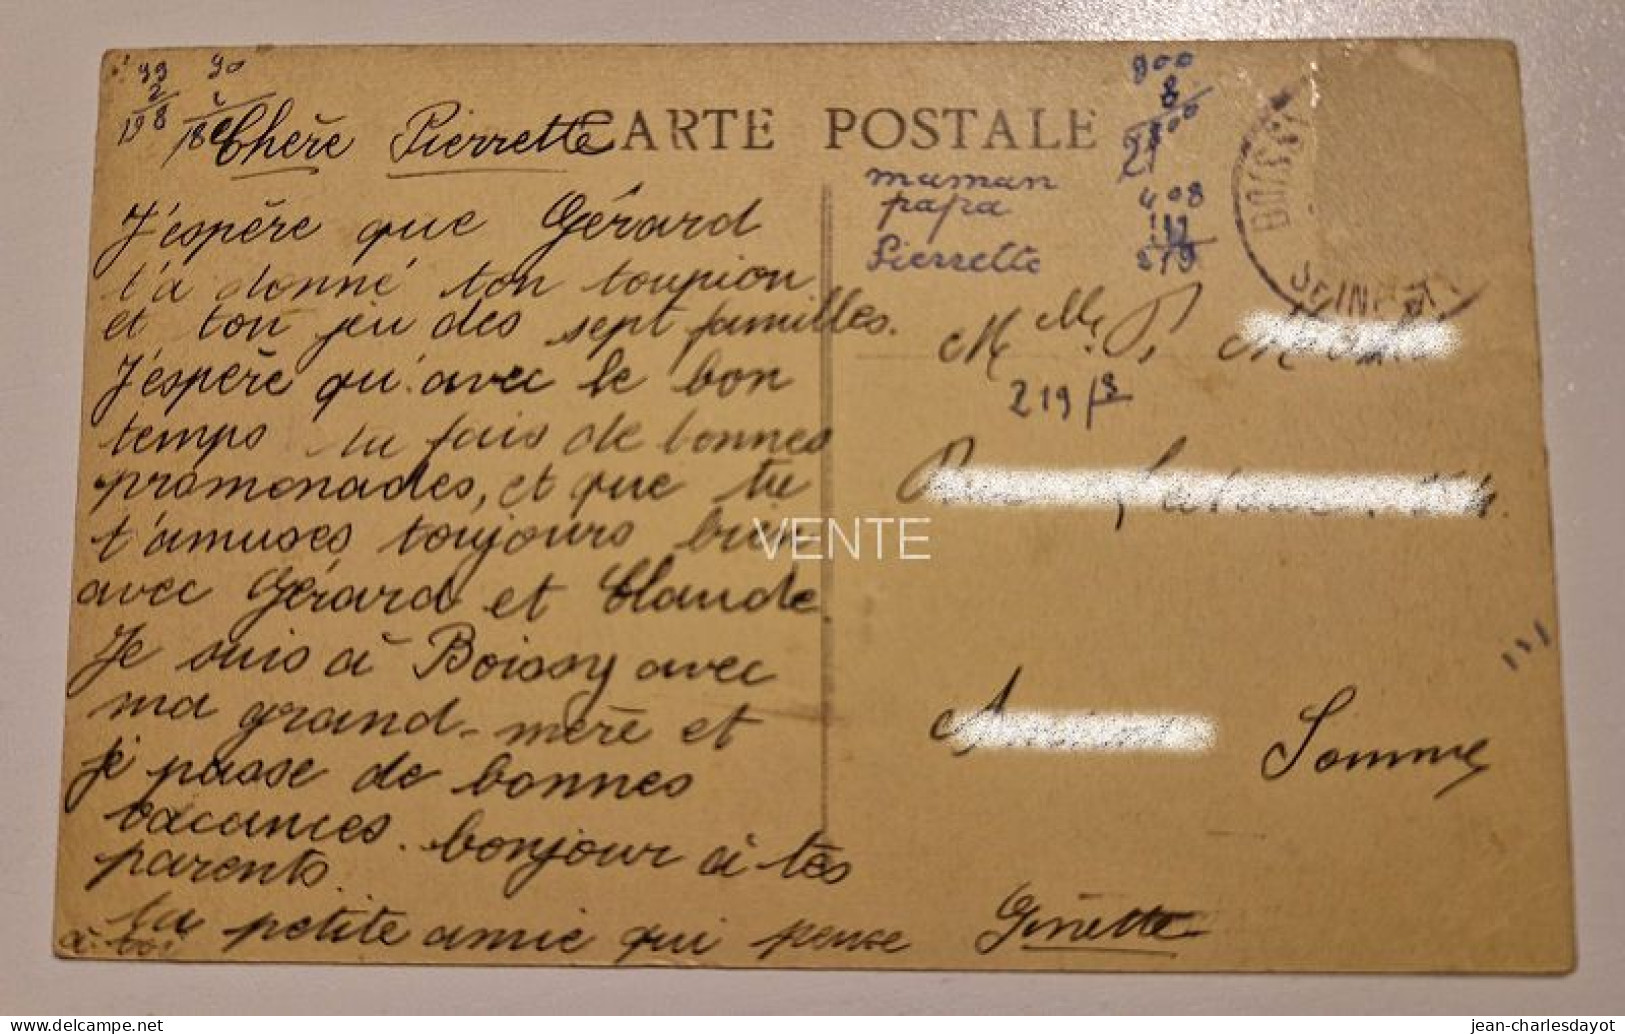 99 90
2
198 180
CARTE POSTALE
Chère Pierrette
J'espère que Gérard
t'a donné ton toupion
et ton jeu des sept familles.
J'espère qu'avec le bon
temps tu fais de bonnes
promonades, et que tu
t'amuses toujours bien
avec Gérard et Claude.
Je suis à Boissy avec
ma grand-mère et
je passe de bonnes
vacances. bonjour à tes
parents.
ta petite amie qui pense
à toi
Ginette
900
8
maman
papa
Pierrette
408
111
519
BOISSY
SEINE
Melle P.
219 / 8
Somme
VENTE
jean-charlesdayot
delcampe.net